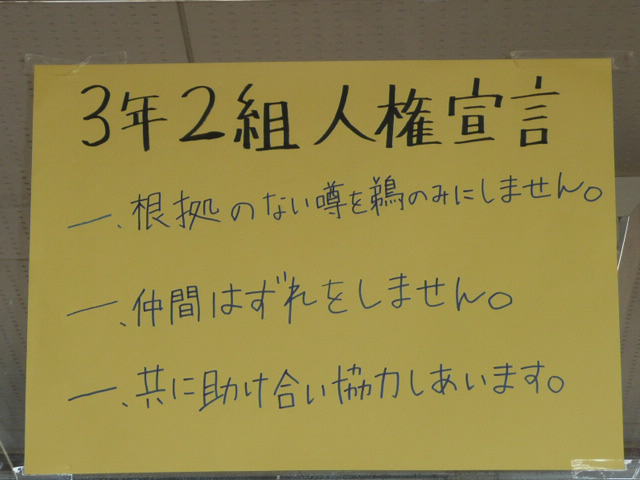 3年2組人権宣言
一、根拠のない噂を鵜のみにしません。
一、仲間はずれをしません。
一、共に助け合い協力しあいます。